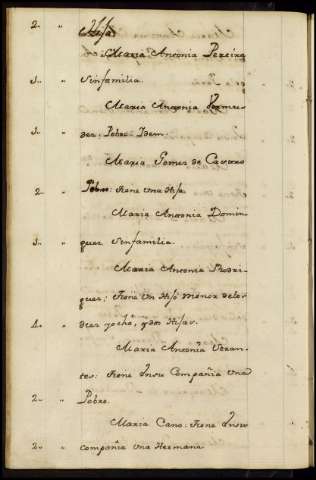 2. " Hija
Maria Antonia Pereira
1. " Sinfamilia.
Maria Antonia Bermu-
1. " des: Pobre Idem.
Maria Gomes de Castro
2 " Pobre: tiene una Hija.
Maria Antonia Domin
1. " gues Sinfamilia.
Maria Antonia Rodri-
gues: tiene un Hijo menor delos
4. " diez yocho, ydos Hijas.
Maria Antonia
tes: tiene Insu Compañia Una
2. " Pobre.
Maria Cano: tiene Insu
2. " compañia una Hermana